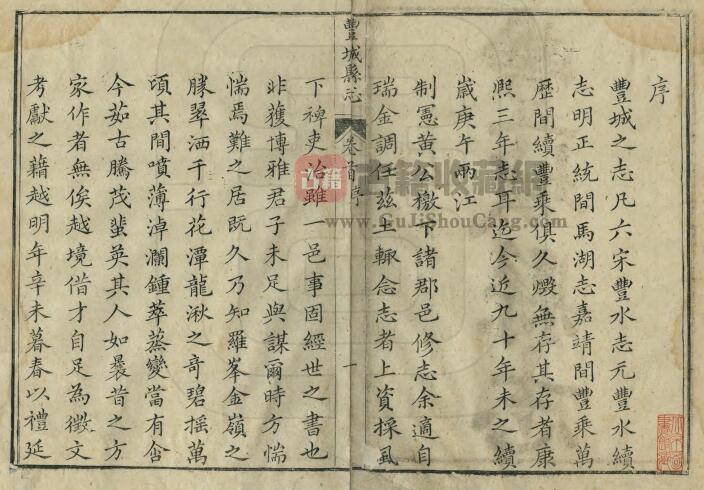 序
豐城之志凡六宋豐水志元豐水續
志明正統間馬湖志嘉靖間豐乘萬
歷間續豐乘俱久燬無存其存者康
熙三年志耳迄今近九十年未之續
歲庚午兩江
制憲黃公檄下諸郡邑修志余適自
瑞金調任茲土輒念志者上資採風
豐城縣志
卷首序
一
下裨吏治雖一邑事固經世之書也
非獲博雅君子未足與謀爾時方惴
惴焉難之居既久乃知羅峯金嶺之
勝翠洒千行花潭龍湫之奇碧摇萬
頃其間噴薄淖瀾鍾萃蒸變當有含
今茹古騰茂蜚英其人如曩昔之方
家作者無俟越境借才自足為徵文
考獻之藉越明年辛未暮春以禮延
古籍收藏網
www.GuJiShouCang.com